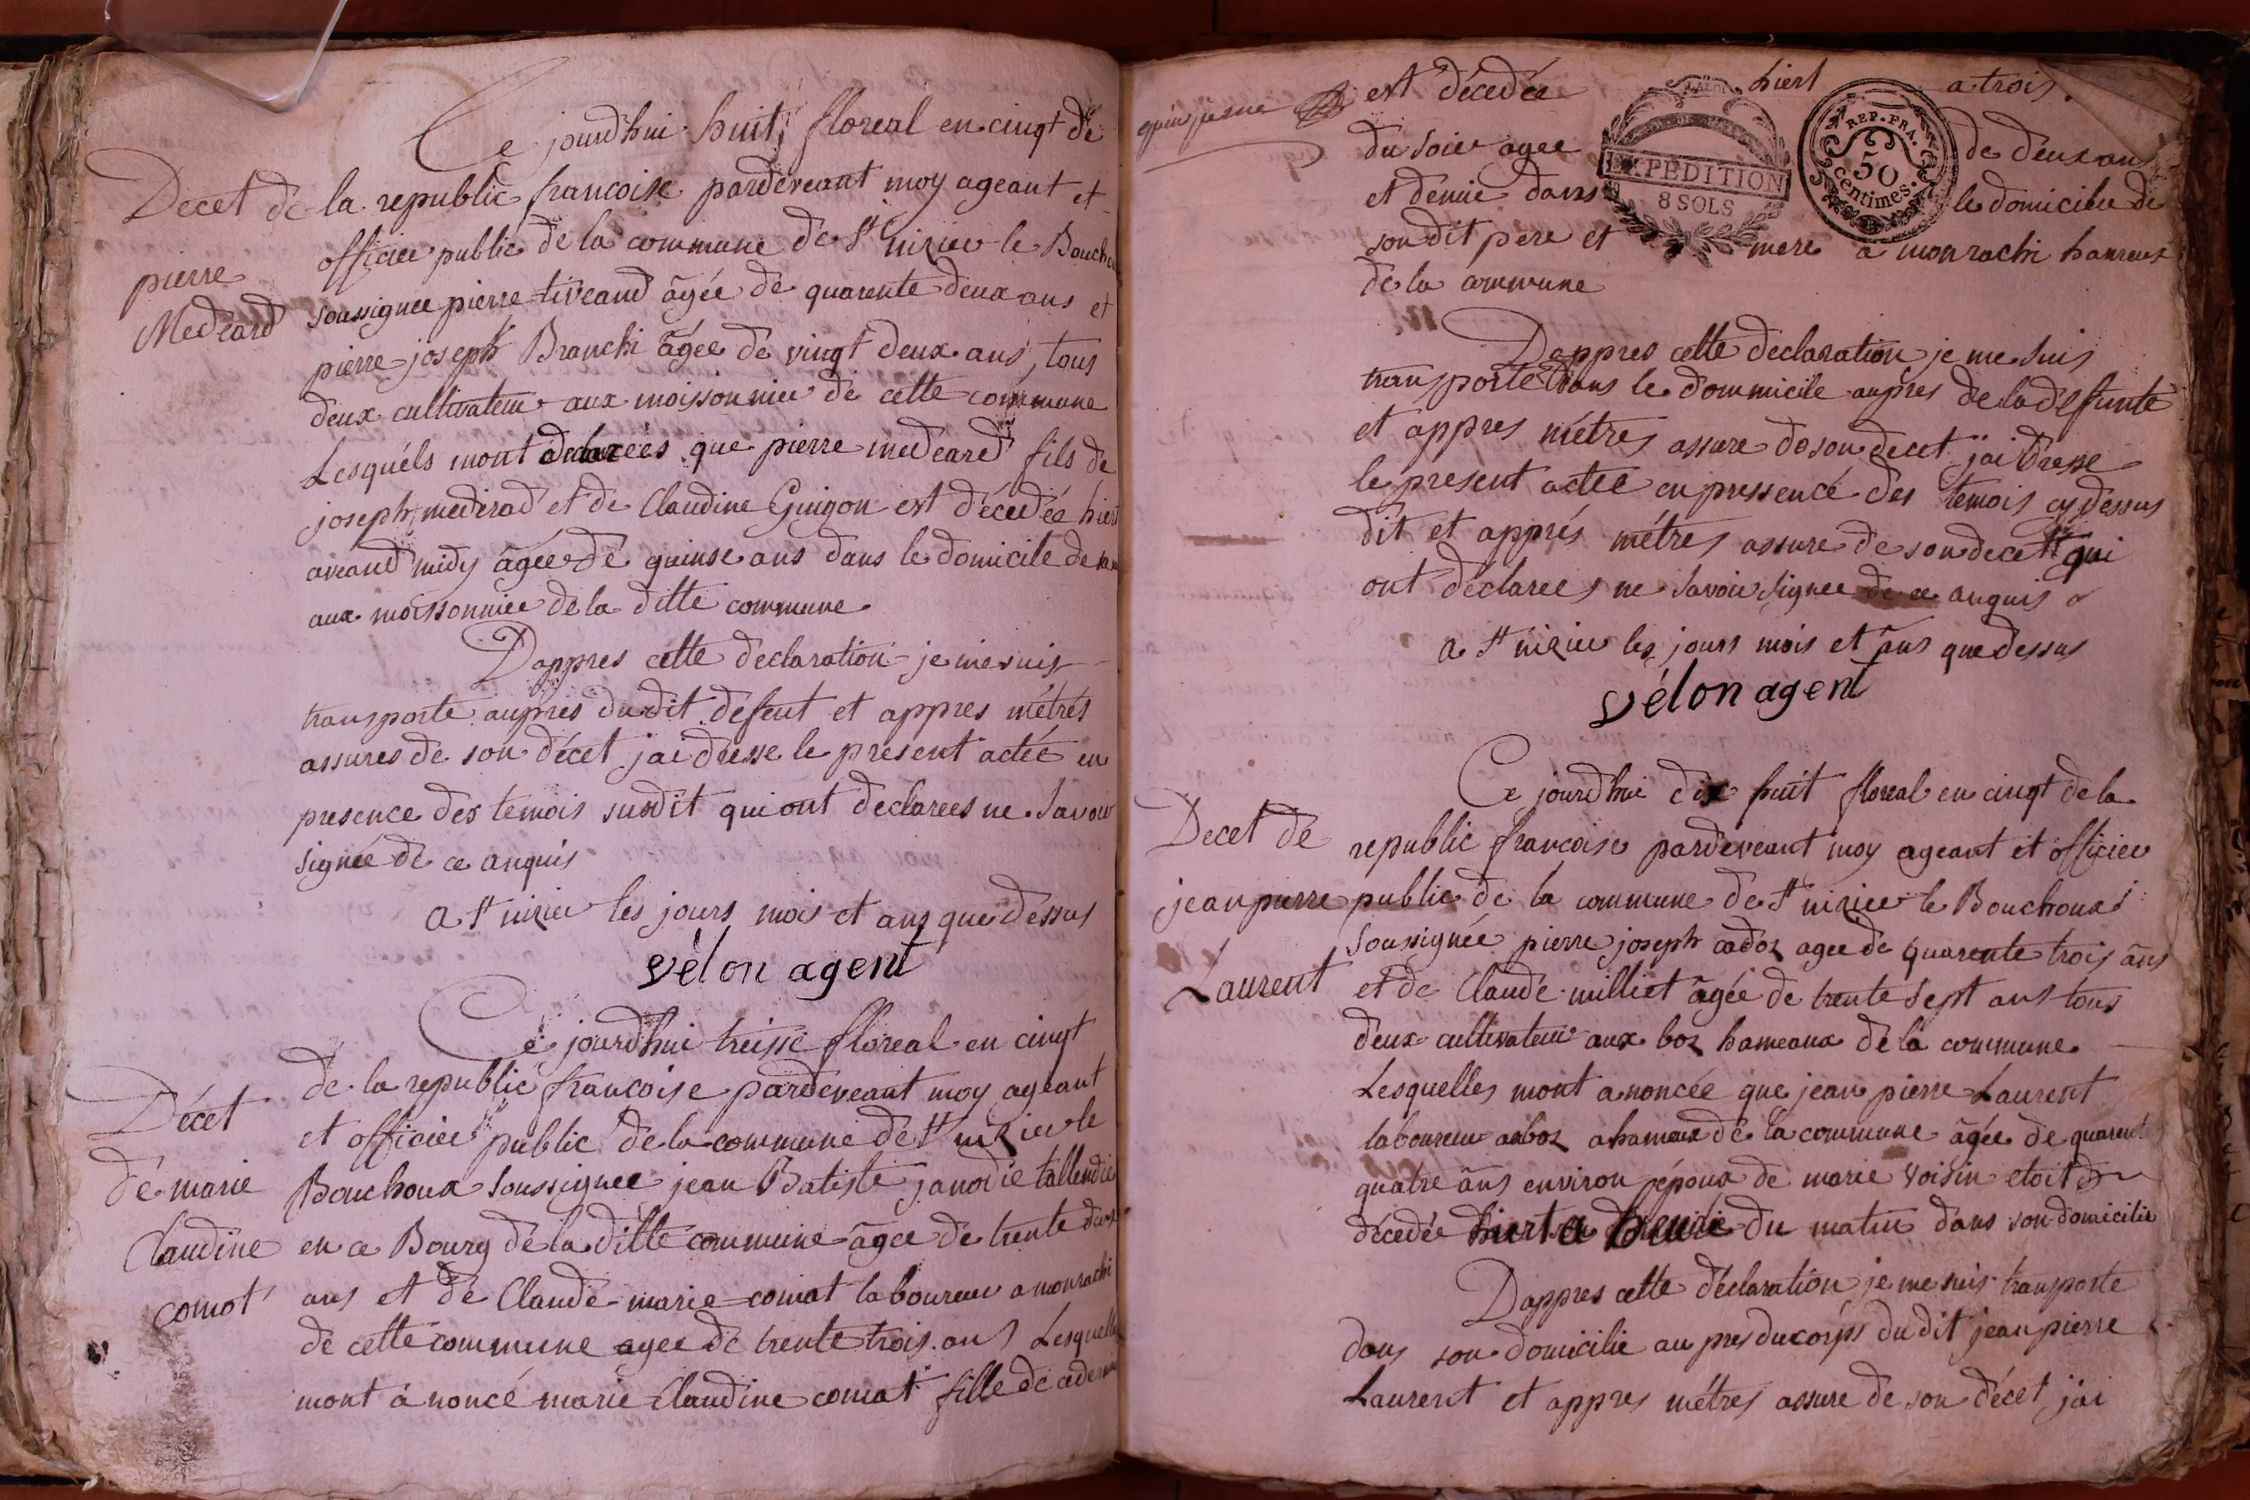 Ce jourdhui huit floreal en cinqt de
Decet de
la republic francoise pardeveant moy ageant et
officier public de la commune de St nizier le Bouchoux
pierre
Medeard
soussignee pierre tiveand âgée de quarente deux ans et
pierre joseph Branchi âgée de vingt deux ans, tous
deux cultivateur aux moissonnier de cette commune
Lesquéls mont declarées que pierre medeard fils de
joseph mederad et de Claudine Guigon est décedée hiert
aveand midy âgée de quinse ans dans le domicile de
aux moissonnier de la ditte commune
Dappres cette declaration je me suis
transporte aupres du dit defeut et appres métrés
assures de son décet jai dresse le present actée en
presence des temois susdit qui ont declarees ne savoir
signée de ce anquis
a St nizier les jours mois et ans que déssus
vélon agent
Ce jourdhui treisse floreal en cinqt
Décet
de marie
Claudine
comot
de la republic francoise pardeveant moy ageant
et officier public de la commune de St nizier le
Bouchoux soussignee jean Batiste janodie tallendie
en ce Bourg de la ditte commune âgee de trente deux
ans et de Claude marie comat laboureur a monrachi
de cette commune agee de trente trois ans Lesquelles
mont ánoncé marie Claudine comat fille de ce dernie
est décedée hiert a trois
du soir agee de deux ans
et demie dans le domicilie de
son dit pere et mere a monrachi hameux
de la commune
RÉP. FRA.
50
centimes.
EXPEDITION
8 SOLS
Dappres cette declaration je me suis
transporte dans le dommicile aupres de la defunte
et appres métres assure de son decet jai dresse
le present actee en pressencé des temois cy dessus
dit et apprés métres assure de son decet qui
ont déclarees ne savoir signee de ce anquis
a St nizier les jours mois et ans que dessus
vélon agent
Ce jourdhui dix huit floreal en cinqt de la
Decet de
jean pierre
Laurent
republic francoise pardeveant moy ageant et officier
public de la commune de St nizier le Bouchoux
soussignée pierre joseph cadoz agee de quarente trois âns
et de Claude milliet âgée de trente sept ans tous
deux cultivateur aux boz hameaux de la commune
Lesquelles mont anoncée que jean pierre Laurent
laboureur aux boz ahameux de la commune âgée de quarente
quatre âns environ époux de marie voisin etoit
décedée hiert a du matin dans son domicilie
Dappres cette déclaration je me suis transporte
dans son domicilie au pres du corps du dit jean pierre
Laurent et appres métres assure de son décet jai